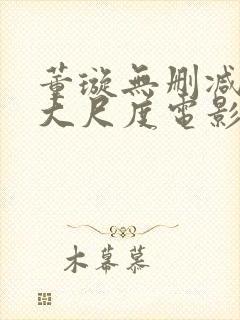 董璇無刪減
大尺度電影
木幕慕